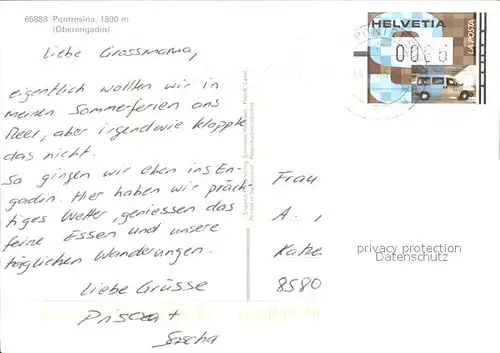 65888 Pontresina, 1800 m
(Oberengadin)
Liebe Grossmama,
eigentlich wollten wir in
meinen Sommerferien ans
Meer, aber irgendwie klappte
das nicht.
So gingen wir eben ins En-
gadin. Hier haben wir präch-
tiges Wetter, geniessen das
feine Essen und unsere
täglichen Wanderungen.
Liebe Grüsse
Prisca +
Sascha
HELVETIA
LA POSTA
Frau
A.
8580
privacy protection
Datenschutz